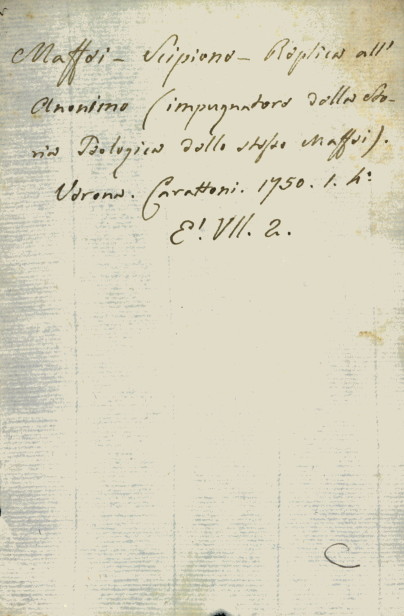 Maffei - Scipione - Replica all'
Anonimo (impugnatore della Sto-
ria Teologica dello stesso Maffei).
Verona. Carattoni. 1750. 1. 4°
E'. VII. 2.
C